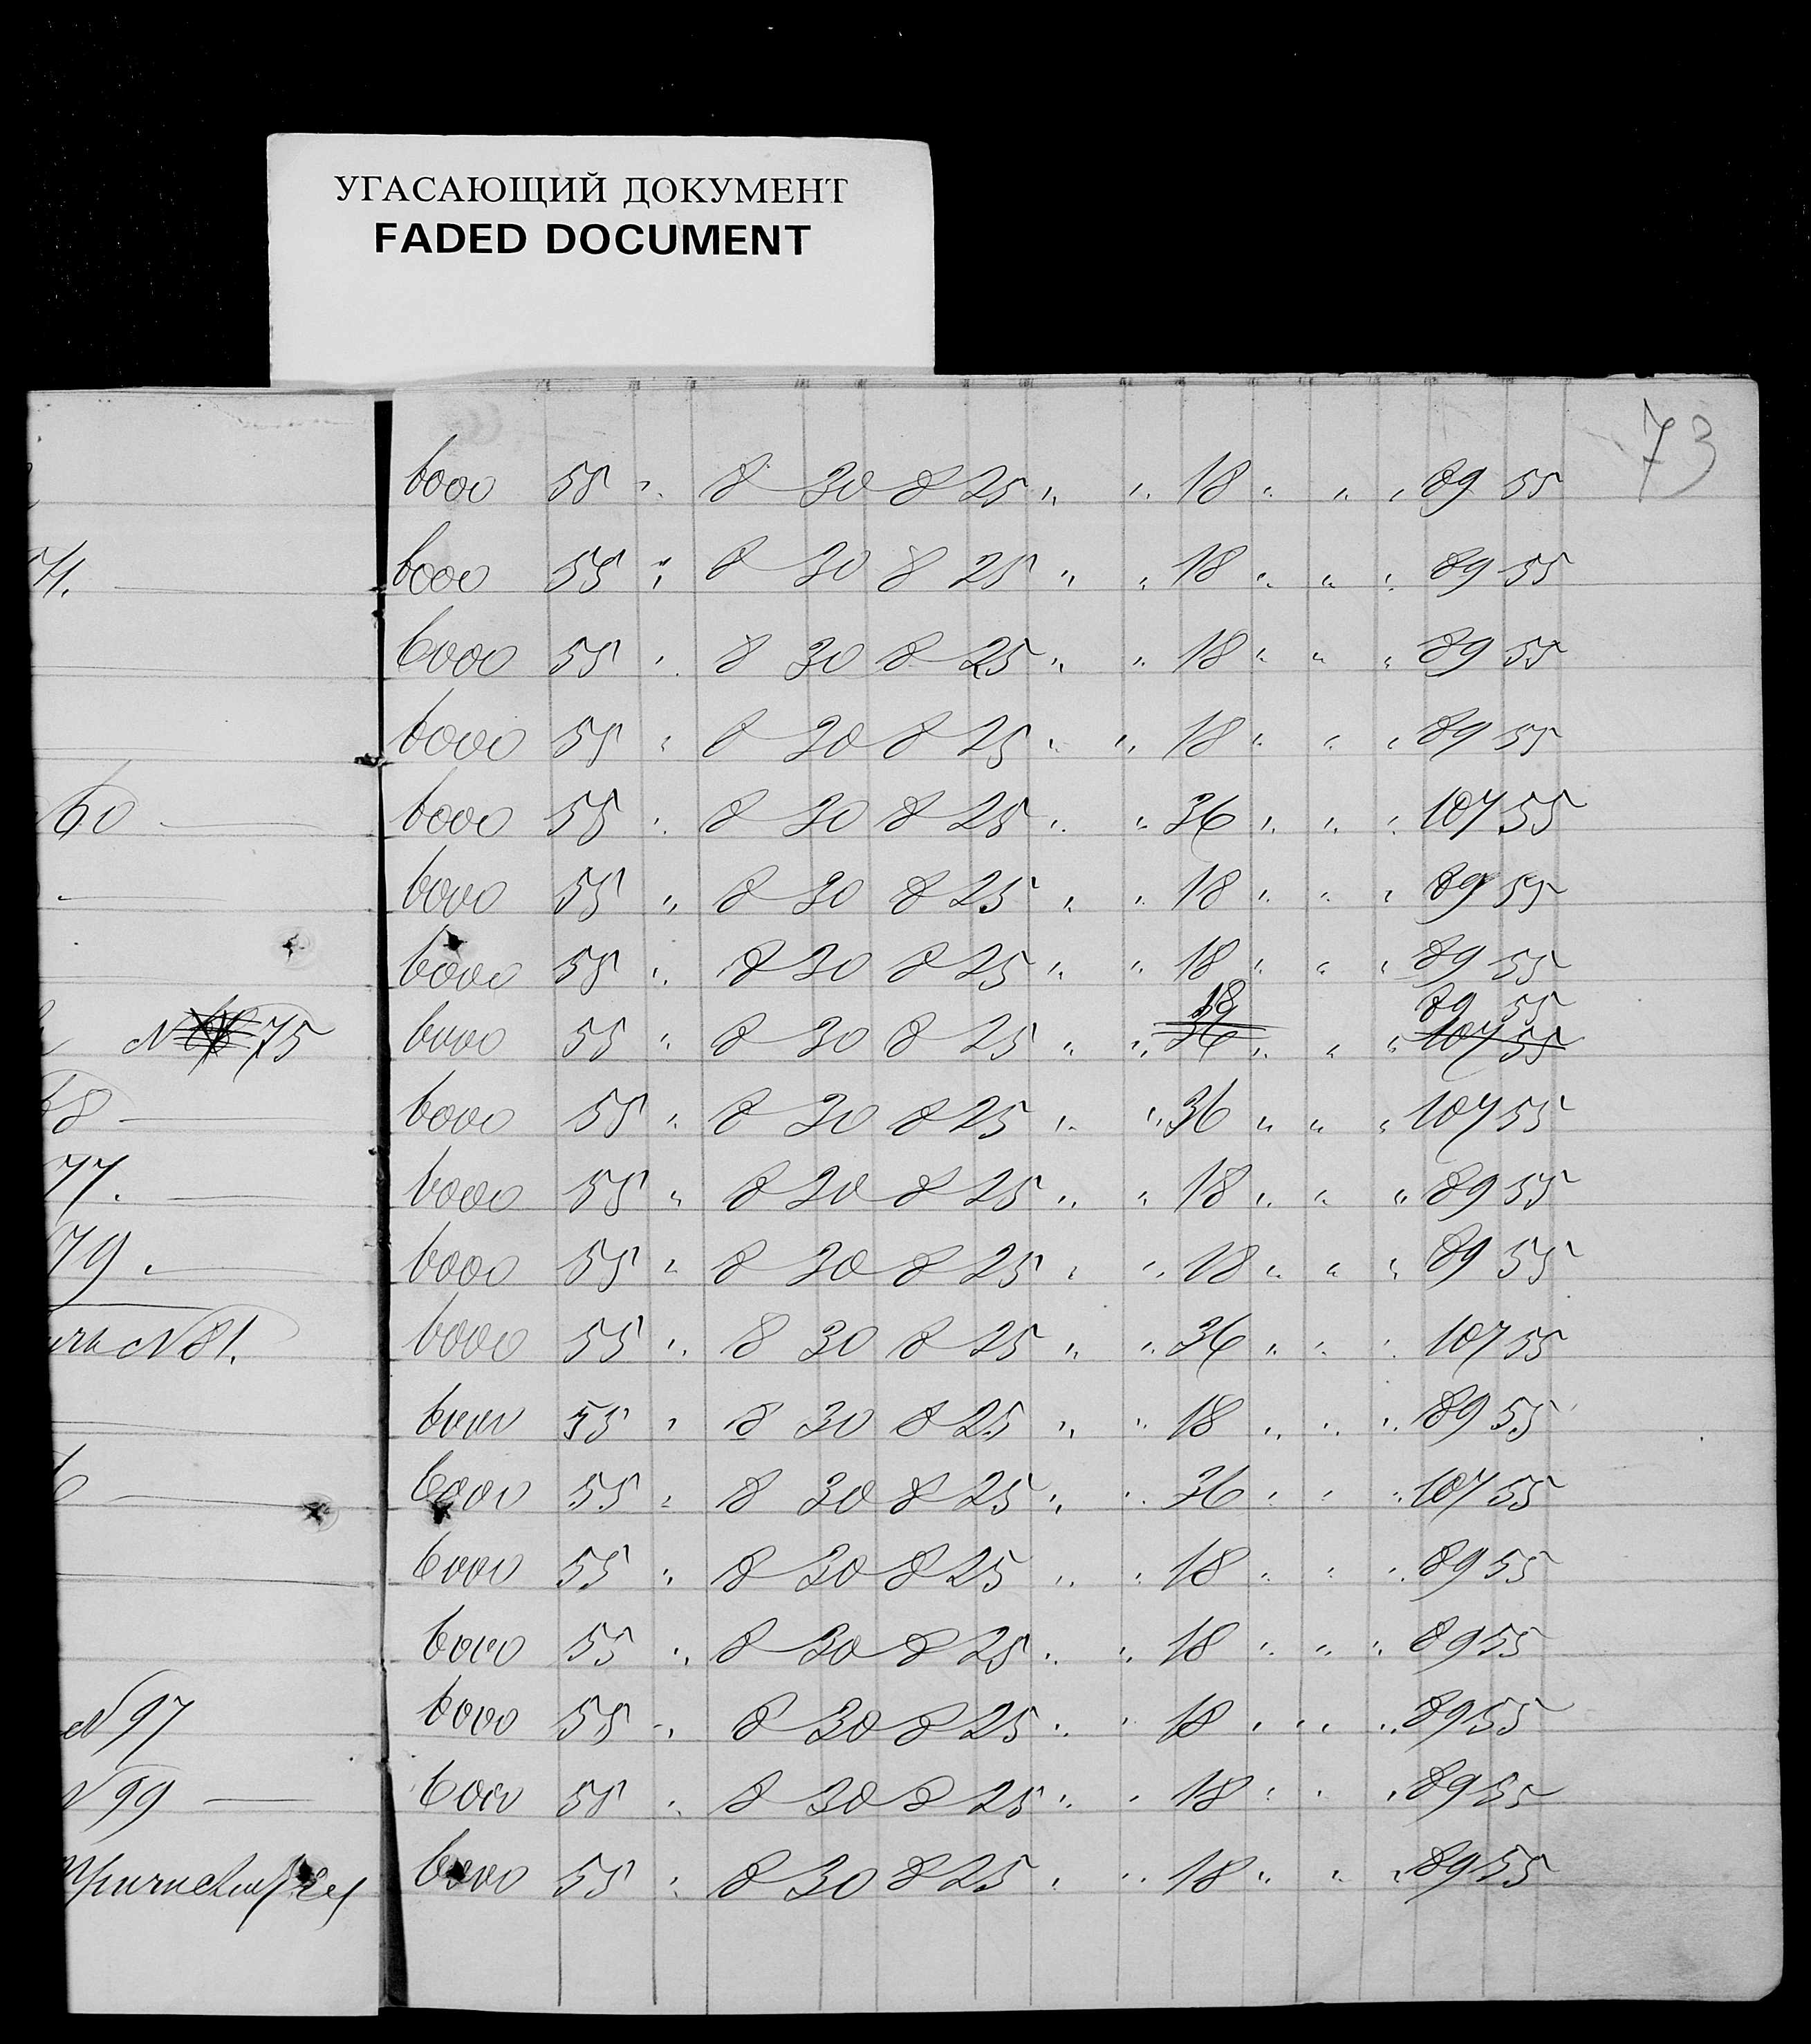 УГАСАЮЩИЙ ДОКУМЕНТ
FADED DOCUMENT
73
6000 55 " 8 30 8 25 " " 18 " " " 89 55
71. 6000 55 " 8 30 8 25 " " 18 " " " 89 55
6000 55 " 8 30 8 25 " " 18 " " " 89 55
6000 55 " 8 30 8 25 " " 18 " " " 89 55
60 6000 55 " 8 30 8 25 " " 36 " " " 107 55
6000 55 " 8 30 8 25 " " 18 " " " 89 55
6000 55 " 8 30 8 25 " " 18 " " " 89 55
18 89 55
N 75 6000 55 " 8 30 8 25 " " 36 " " " 107 55
8 6000 55 " 8 30 8 25 " " 36 " " " 107 55
77. 6000 55 " 8 30 8 25 " " 18 " " " 89 55
79. 6000 55 " 8 30 8 25 " " 18 " " " 89 55
N 81. 6000 55 " 8 30 8 25 " " 36 " " " 107 55
6000 55 " 8 30 8 25 " " 18 " " " 89 55
6000 55 " 8 30 8 25 " " 36 " " " 107 55
6000 55 " 8 30 8 25 " " 18 " " " 89 55
6000 55 " 8 30 8 25 " " 18 " " " 89 55
N 97 6000 55 " 8 30 8 25 " " 18 " " " 89 55
N 99 6000 55 " 8 30 8 25 " " 18 " " " 89 55
6000 55 " 8 30 8 25 " " 18 " " " 89 55